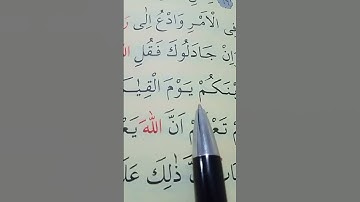 فِى الْاَمْرِ وَادْعُ اِلٰى رَ
وَاِنْ جَادَلُوكَ فَقُلِ اللّٰ
يْنَكُمْ يَوْمَ الْقِيٰمَ
مْ تَعْلَمْ اَنَّ اللّٰهَ يَعْ
اِنَّ ذٰلِكَ عَلَ